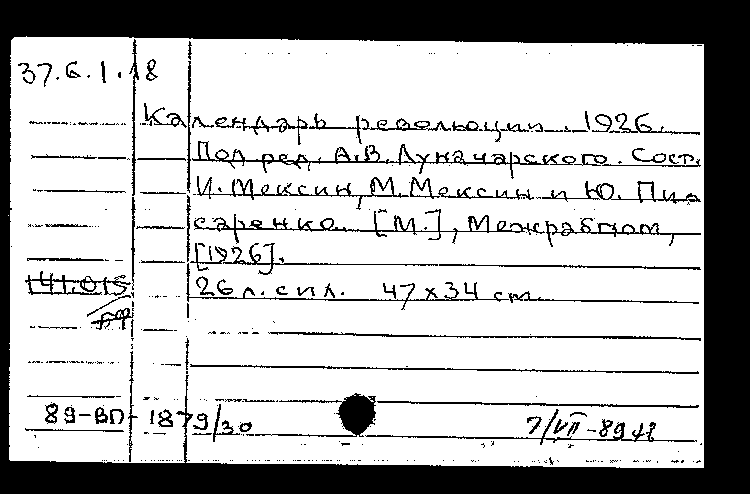 37.6.1.18
Календарь революции. 1926.
Под ред. А.В. Луначарского. Сост.
И. Мексин, М. Мексин и Ю. Пи
саренко. [М.], Межрабпом,
[1926].
141.015
26 л. илл. 47 х 34 cm.
89-ВП-1879/30
7/VII-89